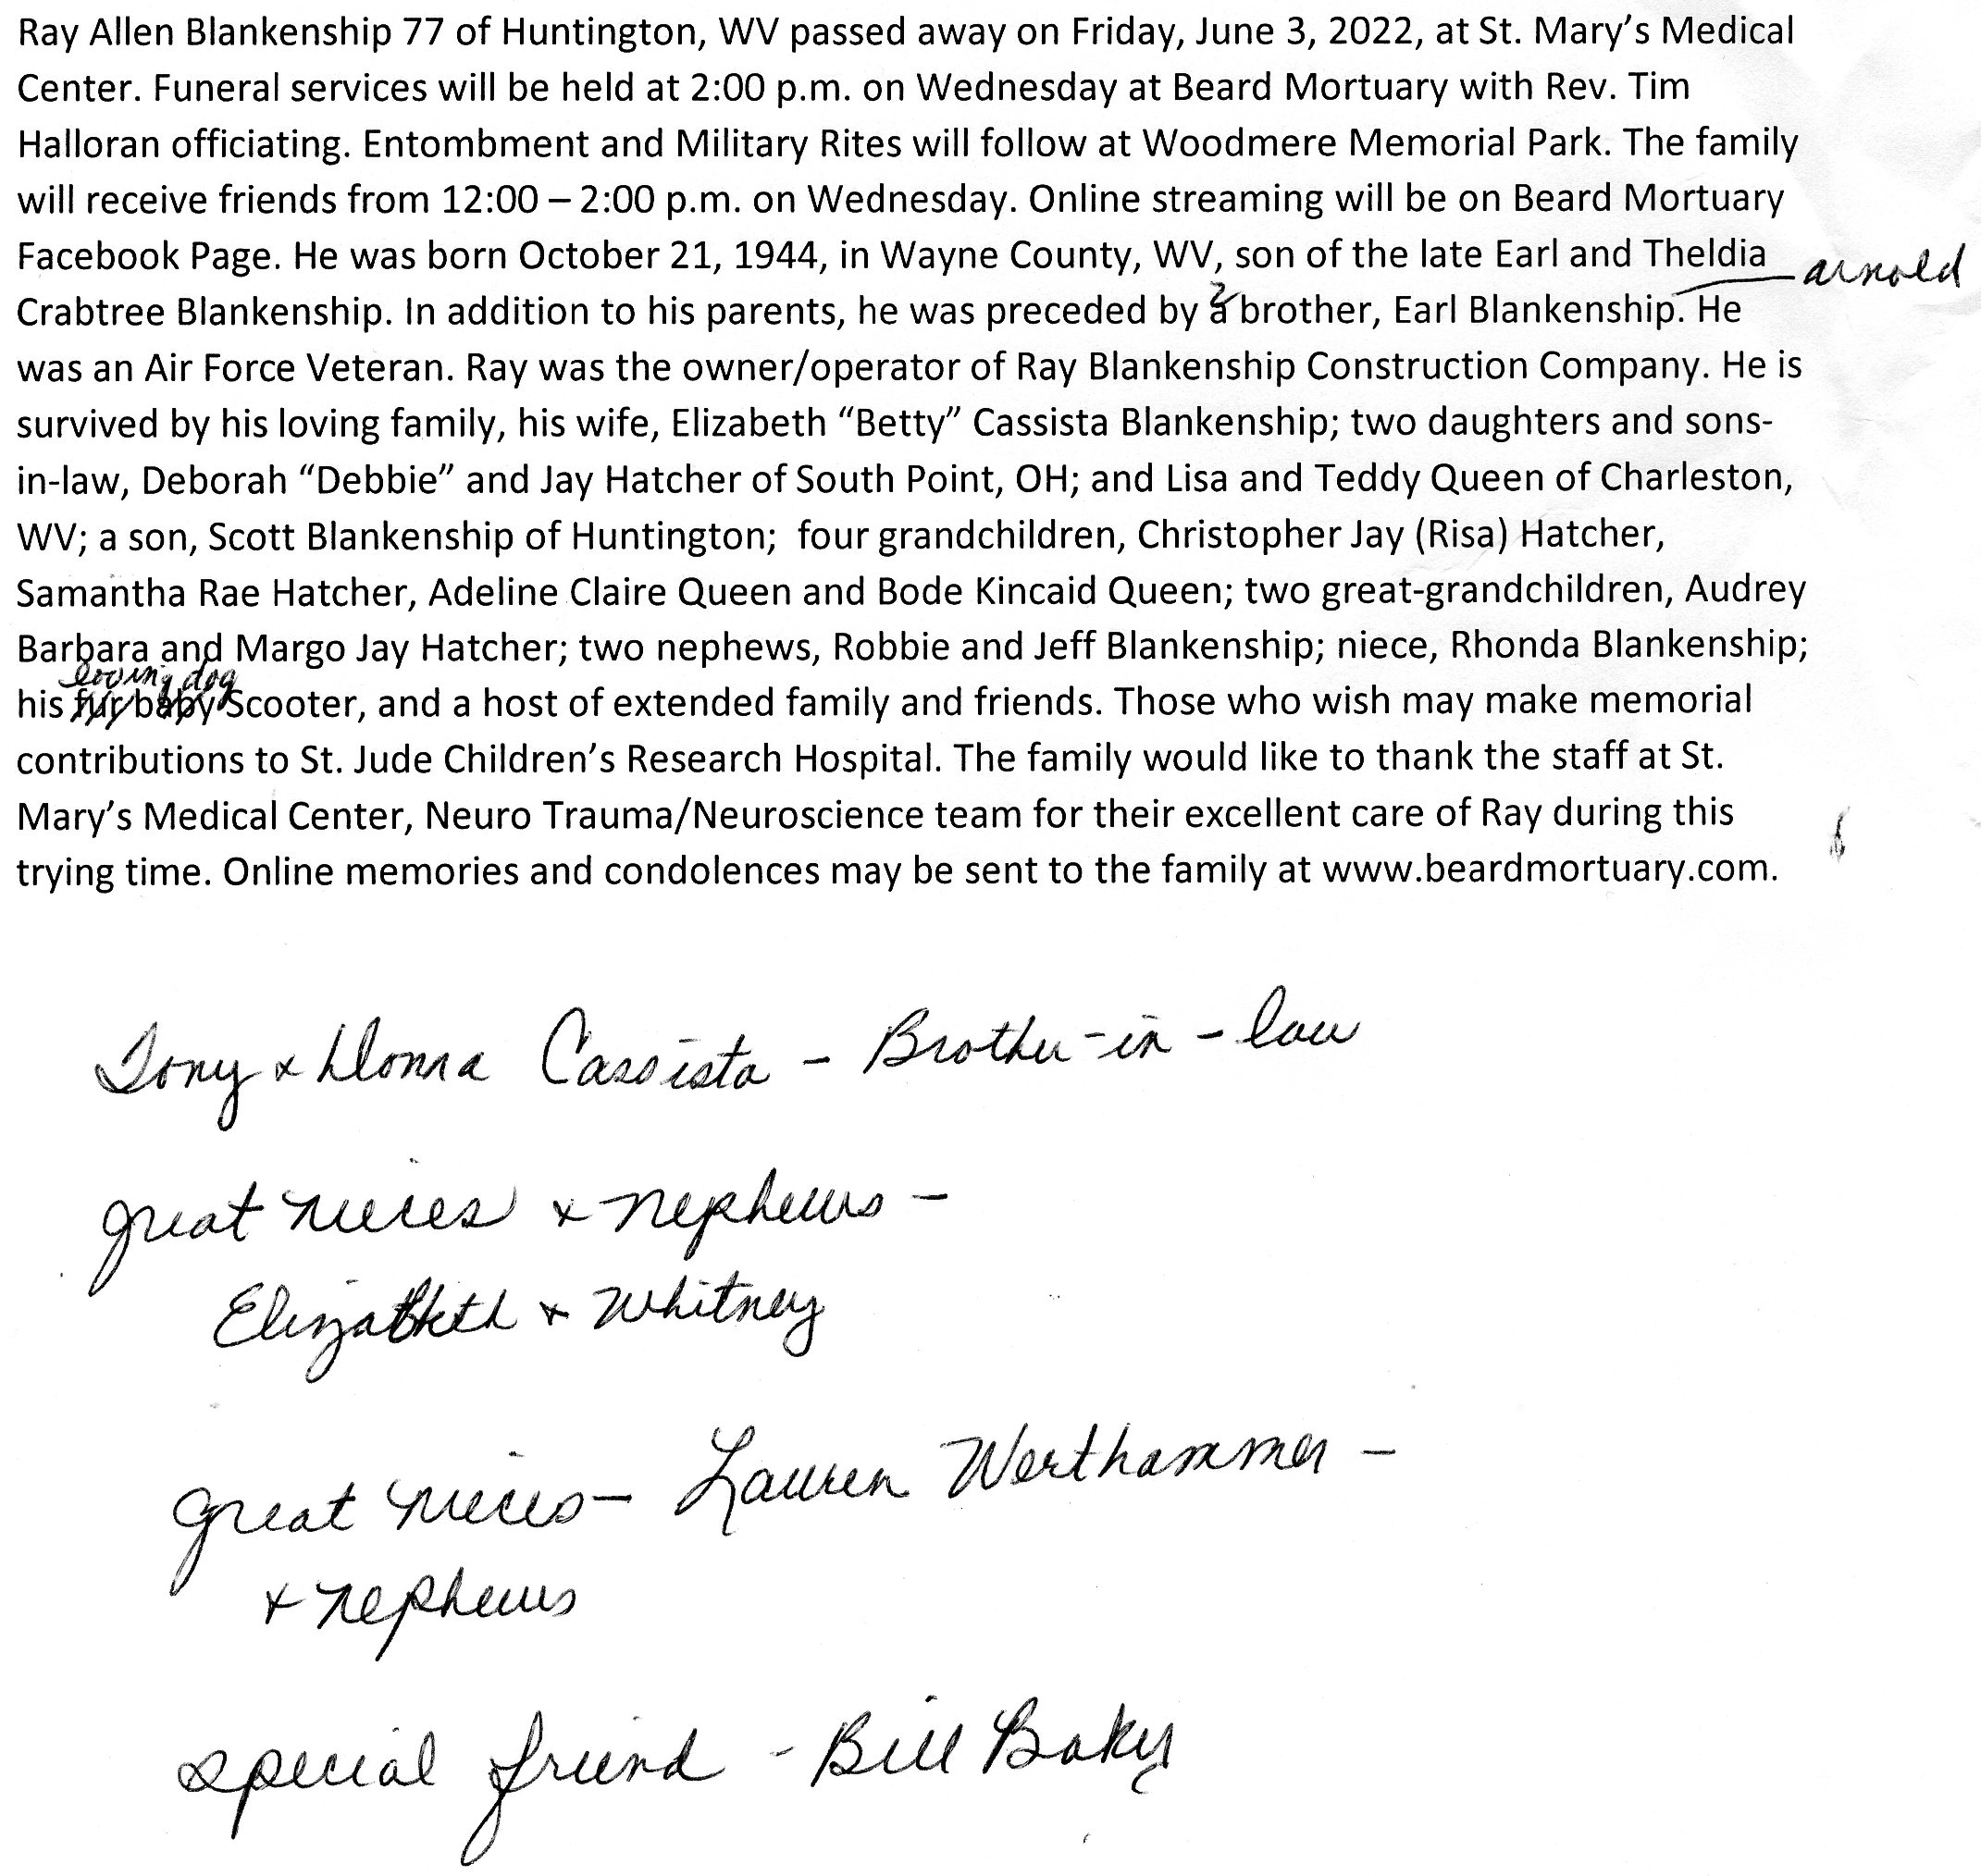 Ray Allen Blankenship 77 of Huntington, WV passed away on Friday, June 3, 2022, at St. Mary’s Medical
Center. Funeral services will be held at 2:00 p.m. on Wednesday at Beard Mortuary with Rev. Tim
Halloran officiating. Entombment and Military Rites will follow at Woodmere Memorial Park. The family
will receive friends from 12:00 – 2:00 p.m. on Wednesday. Online streaming will be on Beard Mortuary
Facebook Page. He was born October 21, 1944, in Wayne County, WV, son of the late Earl and Theldia
arnold
2
Crabtree Blankenship. In addition to his parents, he was preceded by a brother, Earl Blankenship. He
was an Air Force Veteran. Ray was the owner/operator of Ray Blankenship Construction Company. He is
survived by his loving family, his wife, Elizabeth “Betty” Cassista Blankenship; two daughters and sons-
in-law, Deborah “Debbie” and Jay Hatcher of South Point, OH; and Lisa and Teddy Queen of Charleston,
WV; a son, Scott Blankenship of Huntington;  four grandchildren, Christopher Jay (Risa) Hatcher,
Samantha Rae Hatcher, Adeline Claire Queen and Bode Kincaid Queen; two great-grandchildren, Audrey
Barbara and Margo Jay Hatcher; two nephews, Robbie and Jeff Blankenship; niece, Rhonda Blankenship;
loving dog
his fur baby Scooter, and a host of extended family and friends. Those who wish may make memorial
contributions to St. Jude Children’s Research Hospital. The family would like to thank the staff at St.
Mary’s Medical Center, Neuro Trauma/Neuroscience team for their excellent care of Ray during this
trying time. Online memories and condolences may be sent to the family at www.beardmortuary.com.
Tony & Donna Cassista - Brother-in-law
great nieces & nephews -
Elizabeth & Whitney
great nieces - Lauren Werthammer -
& nephews
special friend - Bill Baker